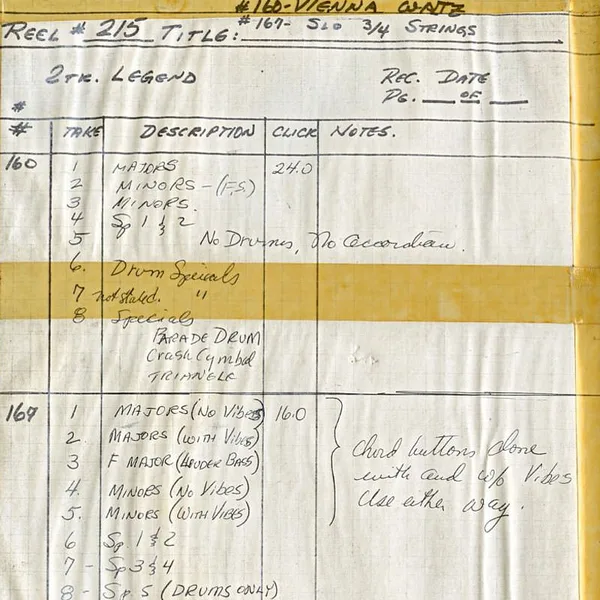 #160-VIENNA WATZ
REEL # 215 TITLE: #167- SLO 3/4 STRINGS
2TK. LEGEND REC. DATE
# PG. ___ OF ___
# TAKE DESCRIPTION CLICK NOTES.
160 1 MAJORS 24.0
2 MINORS - (F.S.)
3 MINORS.
4 Sp 1 & 2
5 No Drums, No accordian.
6. Drum Specials
7 not slated. "
8 Specials
PARADE DRUM
Crash Cymbal
TRIANGLE
167 1 MAJORS (No Vibes) 16.0
2. MAJORS (WITH VIBES)
3 F MAJOR (LOUDER BASS)
4. MINORS (No VIBES)
5. MINORS (WITH VIBES)
chord buttons alone
with and w/o Vibes
Use either way.
6 Sp 1 & 2
7 - Sp 3 & 4
8 - Sp 5 (DRUMS ONLY)